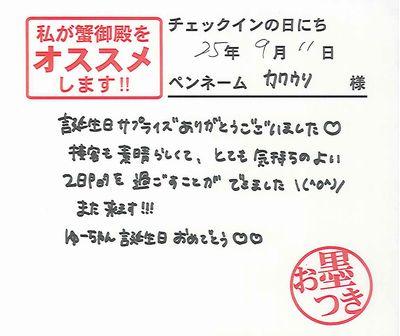 私が蟹御殿を
オススメ
します!!
チェックインの日にち
25年 9月 11日
ペンネーム カワウソ 様
誕生日サプライズありがとうございました♡
接客も素晴らしくて、とても気持ちのよい
2日間を過ごすことができました \(^o^)/
また来ます!!!
ゆーちゃん誕生日おめでとう♡♡
お墨
つき